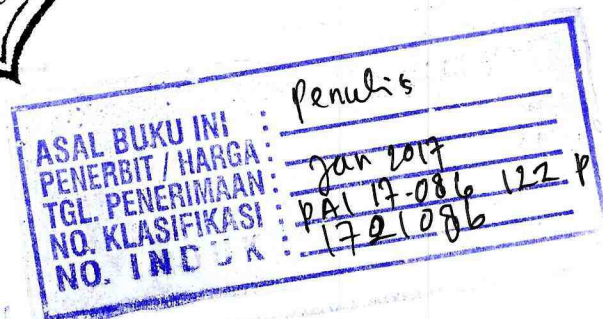 ASAL BUKU INI : Penulis
PENERBIT / HARGA :
TGL. PENERIMAAN : Jan 2017
NO. KLASIFIKASI : PAI 17.086 122 P
NO. INDUK : 1721086